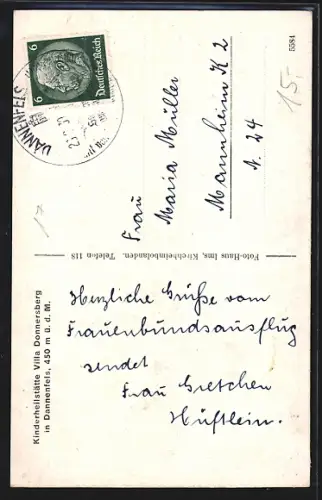 DANNENFELS
6 6
Deutsches Reich
5584
15.-
Frau
Maria Müller
Mannheim K 2
A. 24
Foto-Haus Ims, Kirchheimbolanden. Telefon 118
Herzliche Grüße vom
Frauenbundsausflug
sendet
Frau Gretchen
Hüftlein.
Kinderheilstätte Villa Donnersberg
in Dannenfels, 450 m ü. d. M.